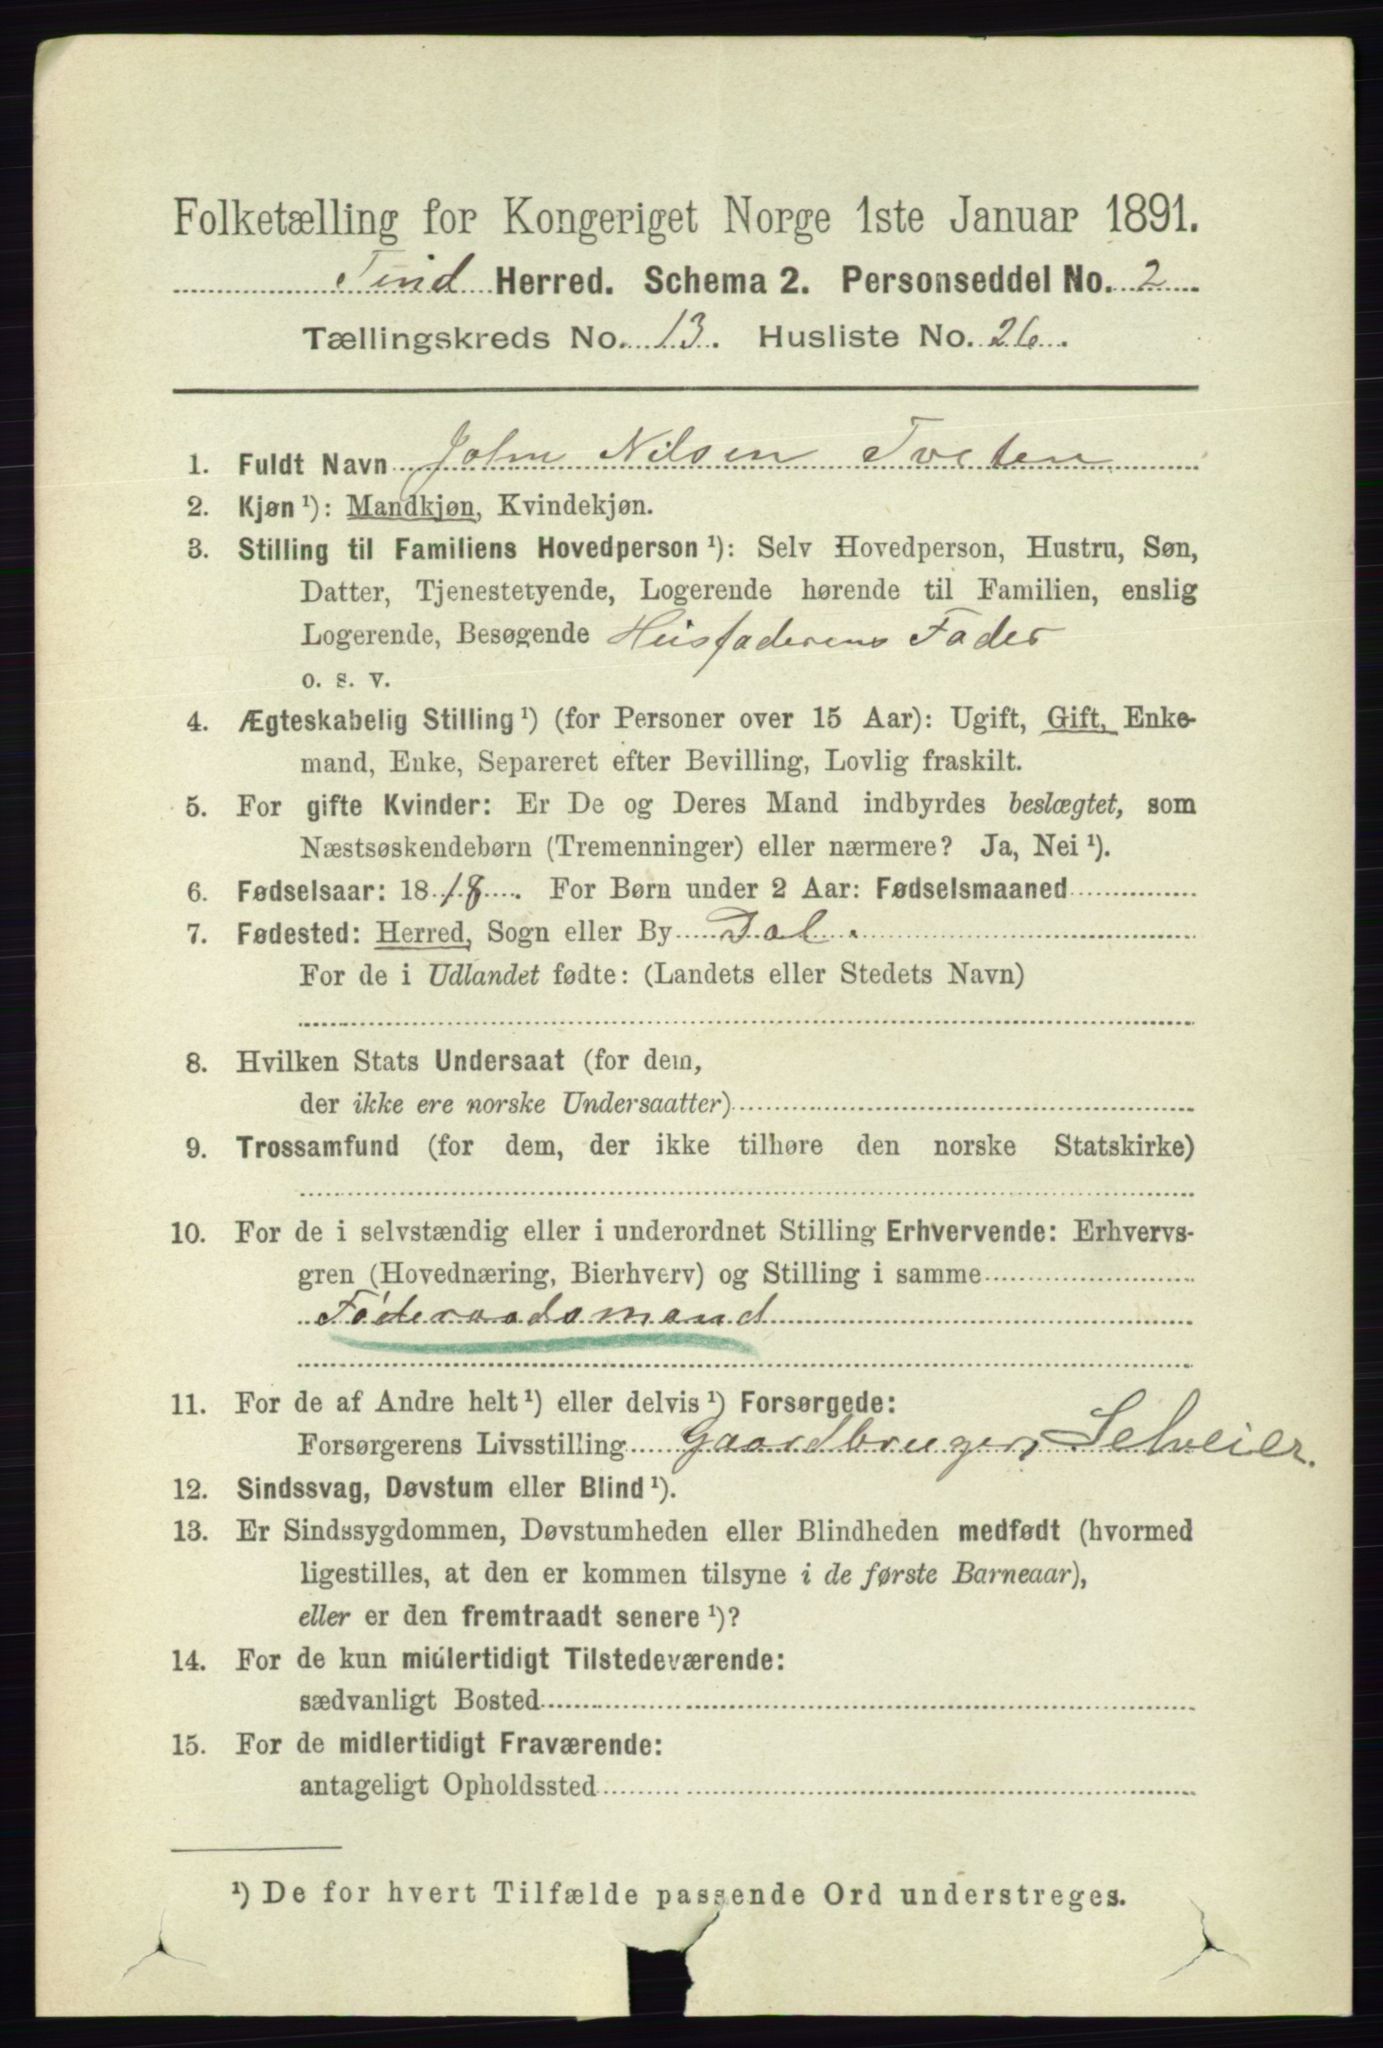 Folketælling for Kongeriget Norge 1ste Januar 1891.
Tind Herred. Schema 2. Personseddel No. 2
Tællingskreds No. 13. Husliste No. 26.
1. Fuldt Navn John Nilsen Tveten
2. Kjøn ¹): Mandkjøn, Kvindekjøn.
3. Stilling til Familiens Hovedperson ¹): Selv Hovedperson, Hustru, Søn,
Datter, Tjenestetyende, Logerende hørende til Familien, enslig
Logerende, Besøgende Husfaderens Fader
o. s. v.
4. Ægteskabelig Stilling ¹) (for Personer over 15 Aar): Ugift, Gift, Enke-
mand, Enke, Separeret efter Bevilling, Lovlig fraskilt.
5. For gifte Kvinder: Er De og Deres Mand indbyrdes beslægtet, som
Næstsøskendebørn (Tremenninger) eller nærmere? Ja, Nei ¹).
6. Fødselsaar: 1818. For Børn under 2 Aar: Fødselsmaaned
7. Fødested: Herred, Sogn eller By Dal.
For de i Udlandet fødte: (Landets eller Stedets Navn)
8. Hvilken Stats Undersaat (for dem,
der ikke ere norske Undersaatter)
9. Trossamfund (for dem, der ikke tilhøre den norske Statskirke)
10. For de i selvstændig eller i underordnet Stilling Erhvervende: Erhvervs-
gren (Hovednæring, Bierhverv) og Stilling i samme
Føderaadsmand
11. For de af Andre helt ¹) eller delvis ¹) Forsørgede:
Forsørgerens Livsstilling Gaardbruger, Selveier.
12. Sindssvag, Døvstum eller Blind ¹).
13. Er Sindssygdommen, Døvstumheden eller Blindheden medfødt (hvormed
ligestilles, at den er kommen tilsyne i de første Barneaar),
eller er den fremtraadt senere ¹)?
14. For de kun midlertidigt Tilstedeværende:
sædvanligt Bosted
15. For de midlertidigt Fraværende:
antageligt Opholdssted
¹) De for hvert Tilfælde passende Ord understreges.